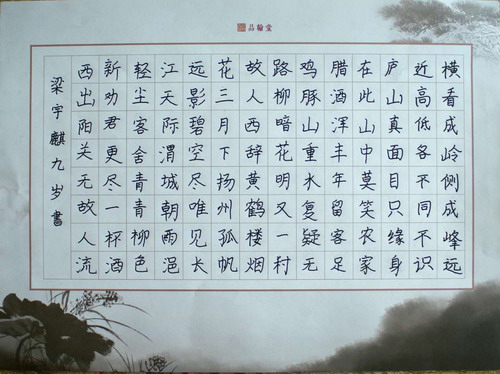 品翰堂
横看成岭侧成峰远
近高低各不同不识
庐山真面目只缘身
在此山中莫笑农家
腊酒浑丰年留客足
鸡豚山重水复疑无
路柳暗花明又一村
故人西辞黄鹤楼烟
花三月下扬州孤帆
远影碧空尽唯见长
江天际渭城朝雨浥
轻尘客舍青青柳色
新劝君更尽一杯酒
西出阳关无故人流
梁宇麒九岁書